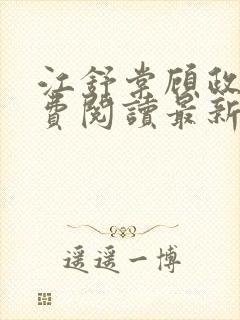 江舒棠顾政
費閱讀最新
遥遥一博